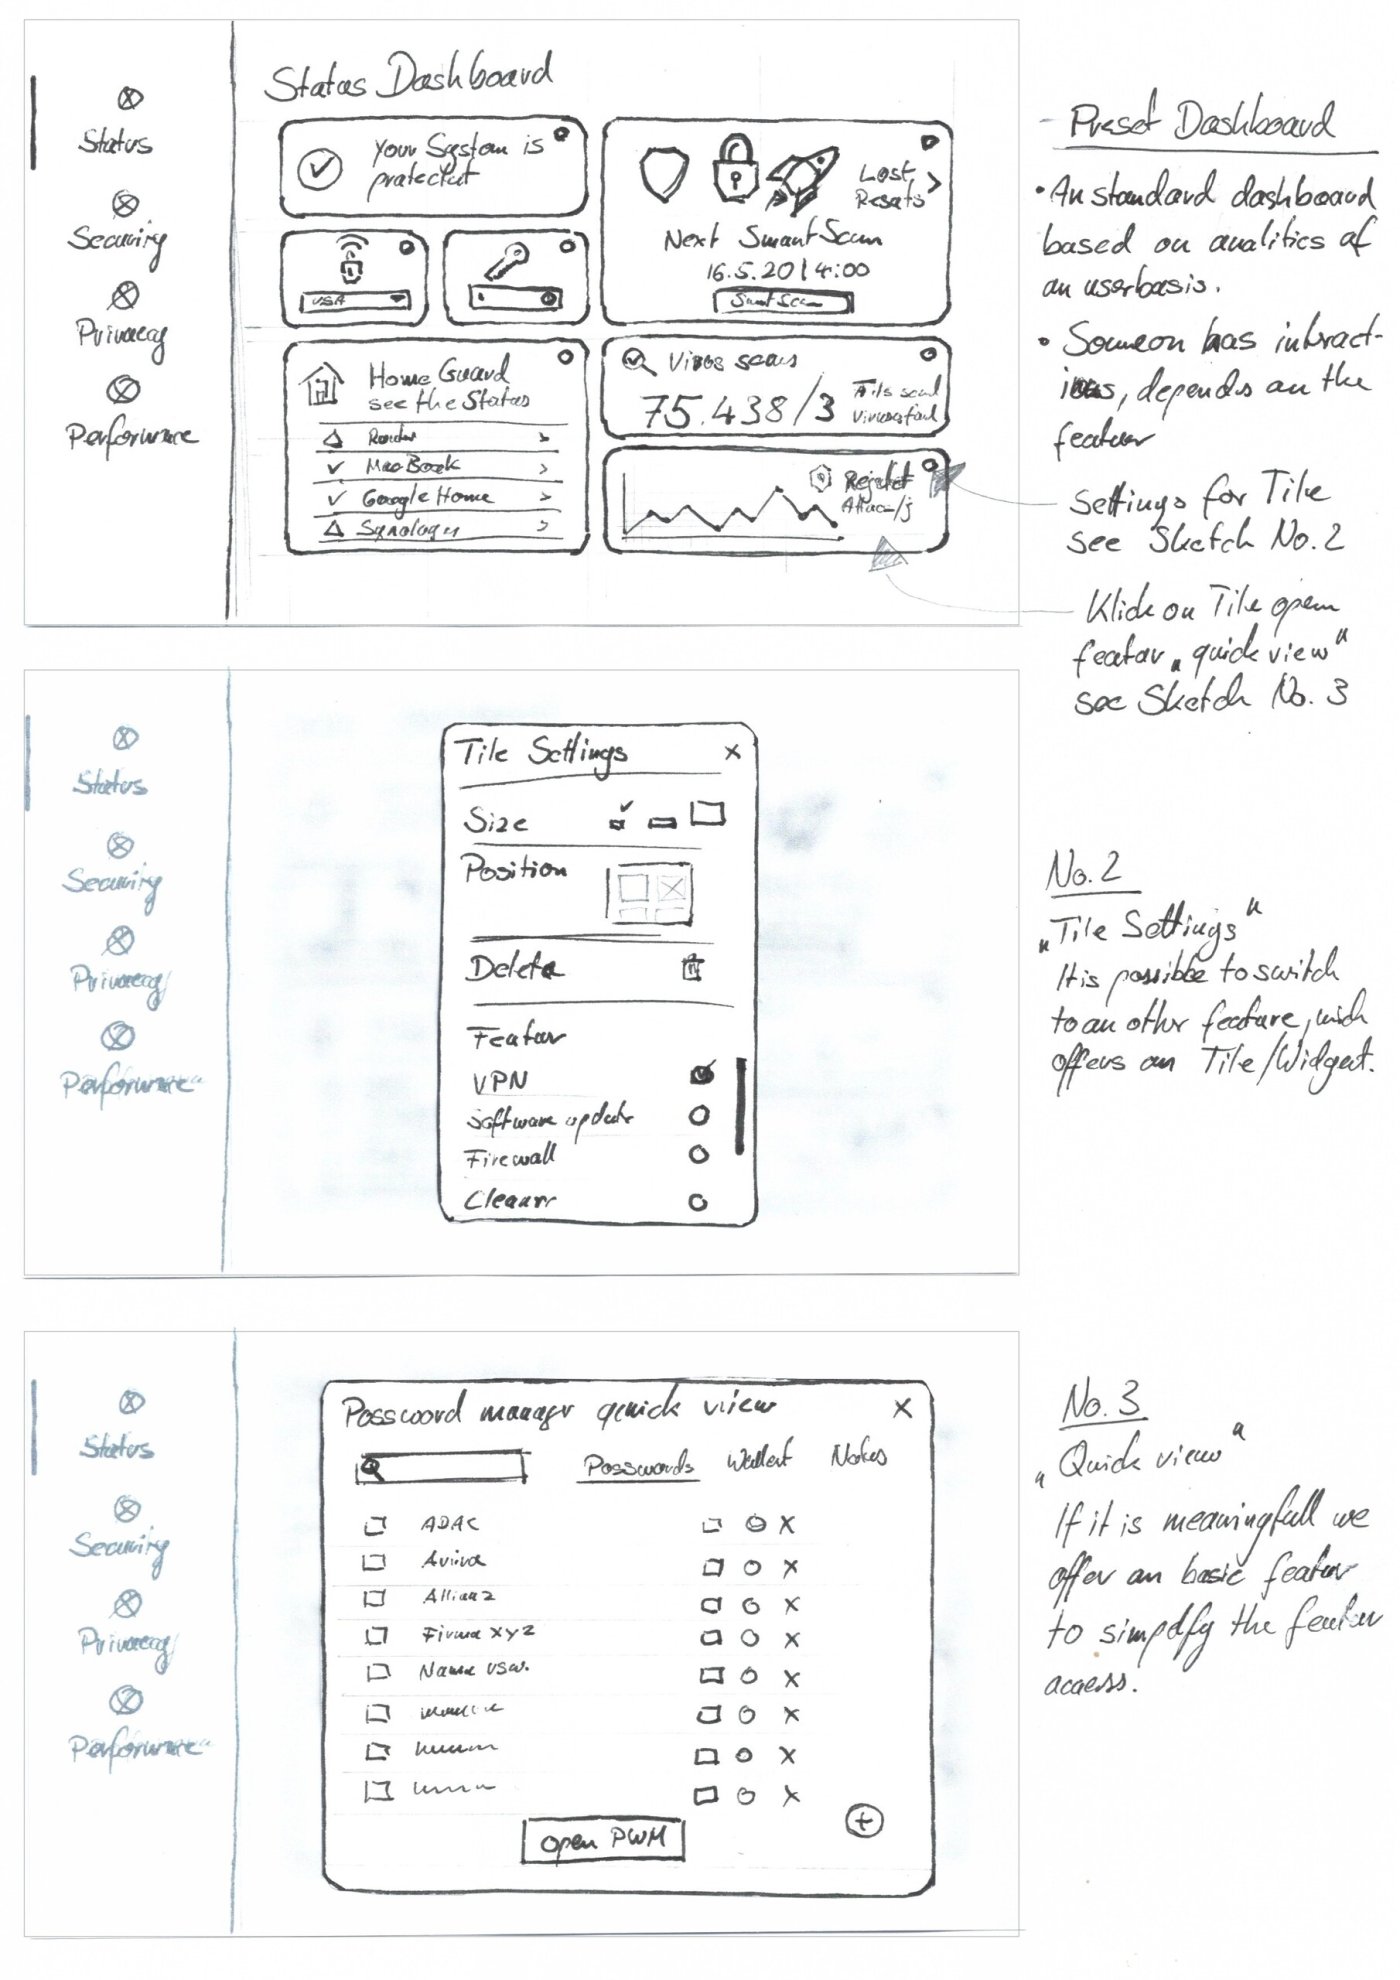 Status Dashboard
Status
Security
Privacy
Performance
Your System is
protectet
Last
Next Smart Scan
16.5.20 | 4:00
Smart Scan
USA
Home Guard
see the Status
Router
MacBook
Google Home
Synology
Virus scans
75.438/3
Preset Dashboard
• An standard dashboard
based on analitics of
an userbasis.
• Someon has intract-
ions, depends on the
featur
Settings for Tile
see Sketch No. 2
Klick on Tile open
featur „quick view"
see Sketch No. 3
Status
Security
Privacy
Performance
Tile Settings ×
Size
Position
Delete
Featur
VPN
Software update
Firewall
Cleanr
No. 2
„Tile Settings"
It is possible to switch
to an othr feature, wich
offers an Tile/Widget.
Status
Security
Privacy
Performance
Password manager quick view ×
Passwords Wallet Notes
ADAC
Avira
Allianz
Firma XYZ
Name usw.
Open PWM
No. 3
„Quick view"
If it is meaningfull we
offer an basic featur
to simplify the featur
access.